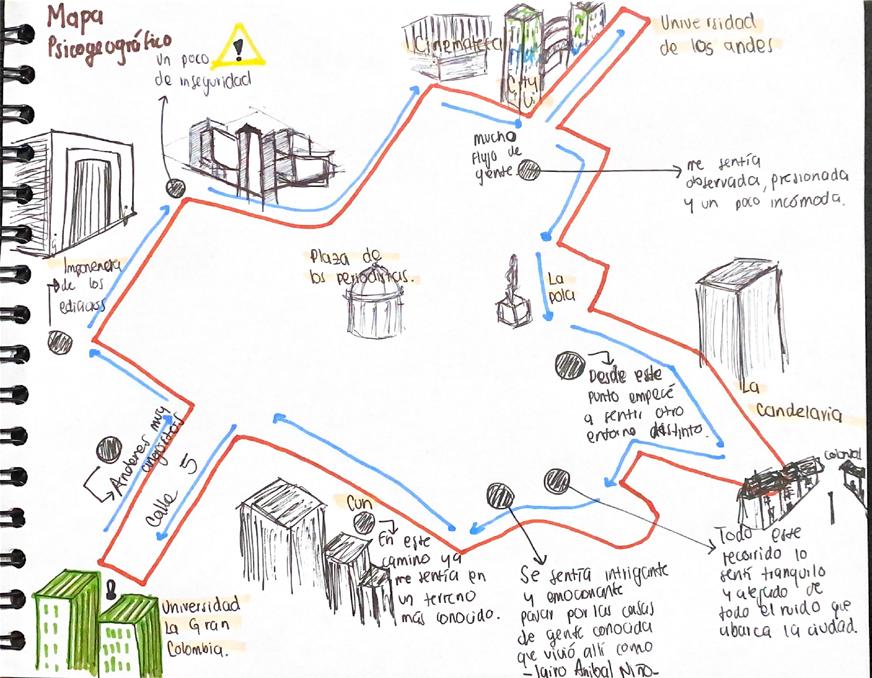 Mapa
Psicogeográfico
un poco
de inseguridad
!
Cinemateca
City
U
Universidad
de los andes
mucho
flujo de
gente.
me sentía
observada, presionada
y un poco incómoda.
Imponencia
de los
edificios
Plaza de
los periodistas.
La
pola
Desde este
punto empecé
a sentir otro
entorno distinto.
La
Candelaria
colonial
Andenes muy
angostos
Calle 5
Cun
En este
camino ya
me sentía en
un terreno
más conocido.
Se sentía intrigante
y emocionante
pasar por las casas
de gente conocida
que vivió allí como
-Jairo Anibal Niño-
Todo este
recorrido lo
sentí tranquilo
y alejado de
todo el ruido que
abarca la ciudad.
Universidad
La Gran
Colombia.